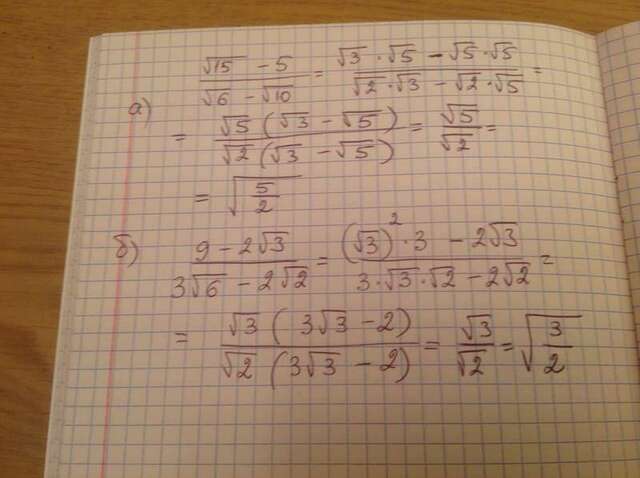 а) (√15 - 5)/(√6 - √10) = (√3 · √5 - √5 · √5)/(√2 · √3 - √2 · √5) =
= (√5 (√3 - √5))/(√2 (√3 - √5)) = √5/√2 =
= √(5/2)
б) (9 - 2√3)/(3√6 - 2√2) = ((√3)² · 3 - 2√3)/(3 · √3 · √2 - 2√2) =
= (√3 (3√3 - 2))/(√2 (3√3 - 2)) = √3/√2 = √(3/2)